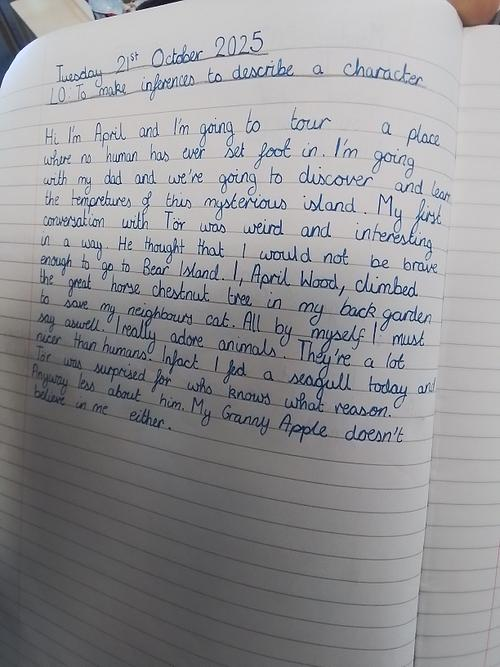 Tuesday 21st October 2025
LO: To make inferences to describe a character
Hi I'm April and I'm going to tour a place
where no human has ever set foot in. I'm going
with my dad and we're going to discover and learn
the tempretures of this mysterious island. My first
conversation with Tör was weird and interesting
in a way. He thought that I would not be brave
enough to go to Bear Island. I, April Wood, climbed
the great horse chestnut tree in my back garden
to save my neighbours cat. All by myself I must
say aswell. I really adore animals. They're a lot
nicer than humans. Infact I fed a seagull today and
Tör was surprised for who knows what reason.
Anyway less about him. My Granny Apple doesn't
believe in me either.